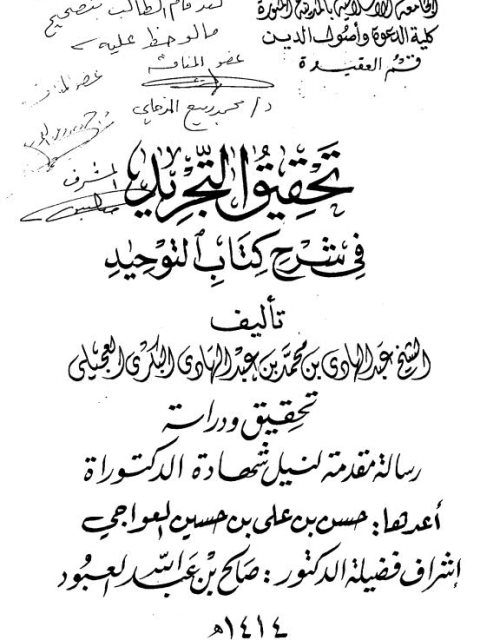 الجامعة الإسلامية بالمدينة المنورة
كلية الدعوة وأصول الدين
قسم العقيدة
لقد قام الطالب بتصحيح
مالوحظ عليه
عضو المناقشة
د/ محمد ربيع
عضو
المشرف
تَحْقِيقُ التَّجْرِيدِ
فِي شَرْحِ كِتَابِ التَّوْحِيدِ
تأليف
الشيخ عبد الهادي بن محمد بن عبد الهادي البكري العجيلي
تحقيق ودراسة
رسالة مقدمة لنيل شهادة الدكتوراة
أعدها: حسن بن علي بن حسين العواجي
إشراف فضيلة الدكتور: صالح بن عبد الله العبود
١٤١٤هـ